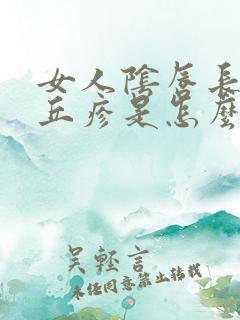 女人陰唇長
丘疹是怎麼
吳輕言
未任同意禁止轉載